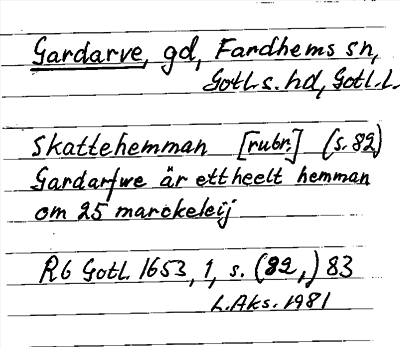 Gardarve, gd, Fardhems sn,
Gotl.s. hd, Gotl.l.
Skattehemman [rubr.] (s. 82)
Gardarfwe är ettheelt hemman
om 25 marckeleij
RB Gotl. 1653, 1, s. (82,) 83
L. Aks. 1981